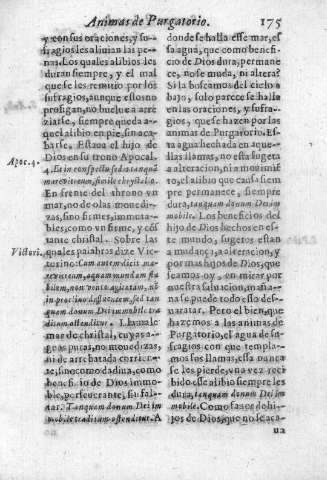 Animas de Purgatorio. 175
y con sus oraciones, y su-
fragios les alivian las pe-
nas. Los quales alibios les
duran siempre, y el mal
que se les remitio por los
sufragios, aunque estos no
prosigan, no buelue a arre
ziarse, siempre queda a-
quel alibio en pie, sin aca-
barse. Estaua el hijo de
Dios en su trono Apocal.
Apoc. 4.
4. Et in conspectu sedis tanquã
mare vitreum, simile chrystallo.
En frente del throno vn
mar, no de olas mouedi-
zas, sino firmes, immuta-
bles, como vn firme, y cõs
tante christal. Sobre las
Victori.
quales palabras dize Vic-
torino:
mar de christal, cuyas a-
guas puras, no mouedizas,
ni de arrebatada corrien-
te, sino como dadiua, como
beneficio de Dios immo-
ble, perseuerante, su fal-
tar. Tanquam donum Dei im
mobile traditum ostenditur. A
donde se halla esse mar, es
sa agua, que como benefi-
cio de Dios dura, permane
ce, no se muda, ni altera?
Si la buscamos del cielo a
baxo, solo parece se halla
en las oraciones, y sufra-
gios, que se hazen por las
animas de Purgatorio. Es
ta agua hechada en aque-
llas llamas, no està sugeta
a alteracion, ni a mouimiẽ
to, el alibio que causa siem
pre permanece, siempre
dura, tanquam donum Dei im
mobile. Los beneficios del
hijo de Dios hechos en es-
te mundo, sugetos estan
a mudança, a alteracion, y
por mas hijos de Dios, que
seamos oy, en mirar por
nuestra saluacion, maña-
na se puede todo esso des-
uaratar. Pero el bien, que
hazemos a las animas de
Purgatorio, el agua de su-
fragios con que templa-
mos sus llamas, essa nunca
se les pierde, vna vez reci
bido esse alibio siempre les
dura, tanquam donum Dei im
mobile. Como si a os do hi-
jos de Dios, que no se aca-
ua